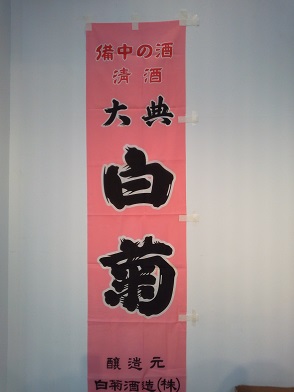 備中の酒
清酒
大典
白菊
醸造元
白菊酒造(株)